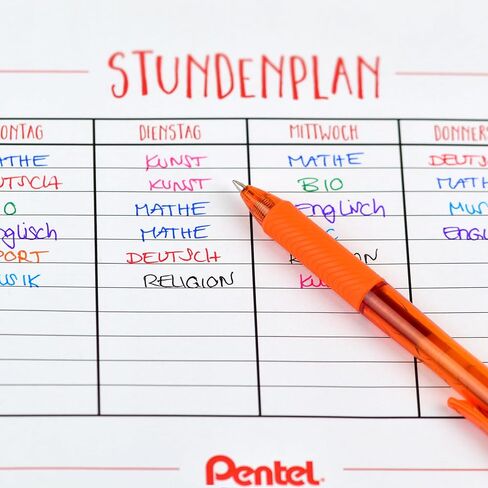 STUNDENPLAN
ONTAG DIENSTAG MITTWOCH DONNERS
ATHE KUNST MATHE DEUTSC
UTSCH KUNST BIO MATH
O MATHE Englisch MUS
glisch MATHE ENGL
PORT DEUTSCH
USIK RELIGION KU
Pentel